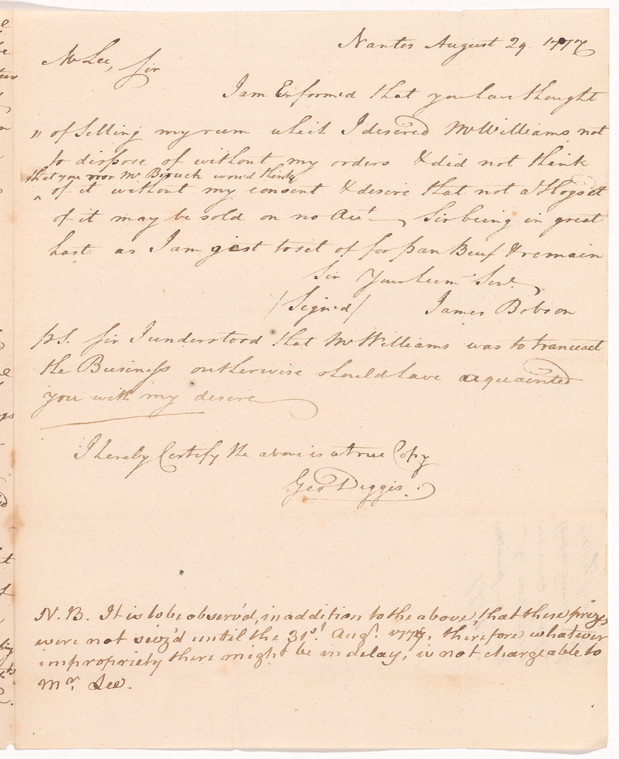 Nantes August 29. 1777
Mr Lee, Sir
I am Enformed that you have thought
" of Selling my rum which I desered Mr Williams not
to dispose of without my orders & did not think
that you nor Mr Bruch would think
^ of it without my consent & desire that not a Hogset
of it may be sold on no Act. Sir being in great
hast as I am gost to set of for pan Beuf & remain
Sir Your hum Sert.
/Signed/ James Bobson
P.S. Sir I understood that Mr Williams was to trancact
the Business outherwise should have acquainted
you with my desire
I hereby Certify the above is a true Copy
Geo Diggis.
N. B. It is to be observ'd, in addition to the above, that these prizes
were not seiz'd until the 31st. Augt. 1777, therefore whatever
impropriety there might be in delay, is not chargeable to
Mr. Lee.